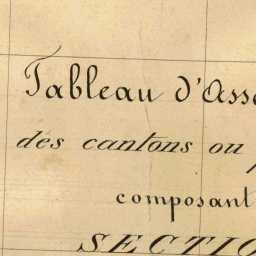 Tableau d'Ass
des cantons ou
composant
SECTIO